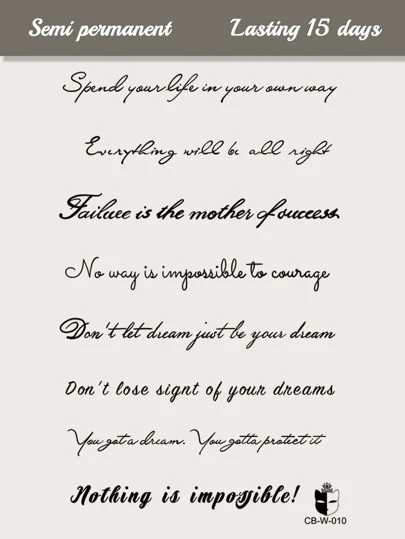 Semi permanent Lasting 15 days
Spend your life in your own way
Everything will be all right
Failuee is the mother of success
No way is impossible to courage
Don't let dream just be your dream
Don't lose signt of your dreams
You got a dream. You gotta protect it
Nothing is impossible!
CB-W-010